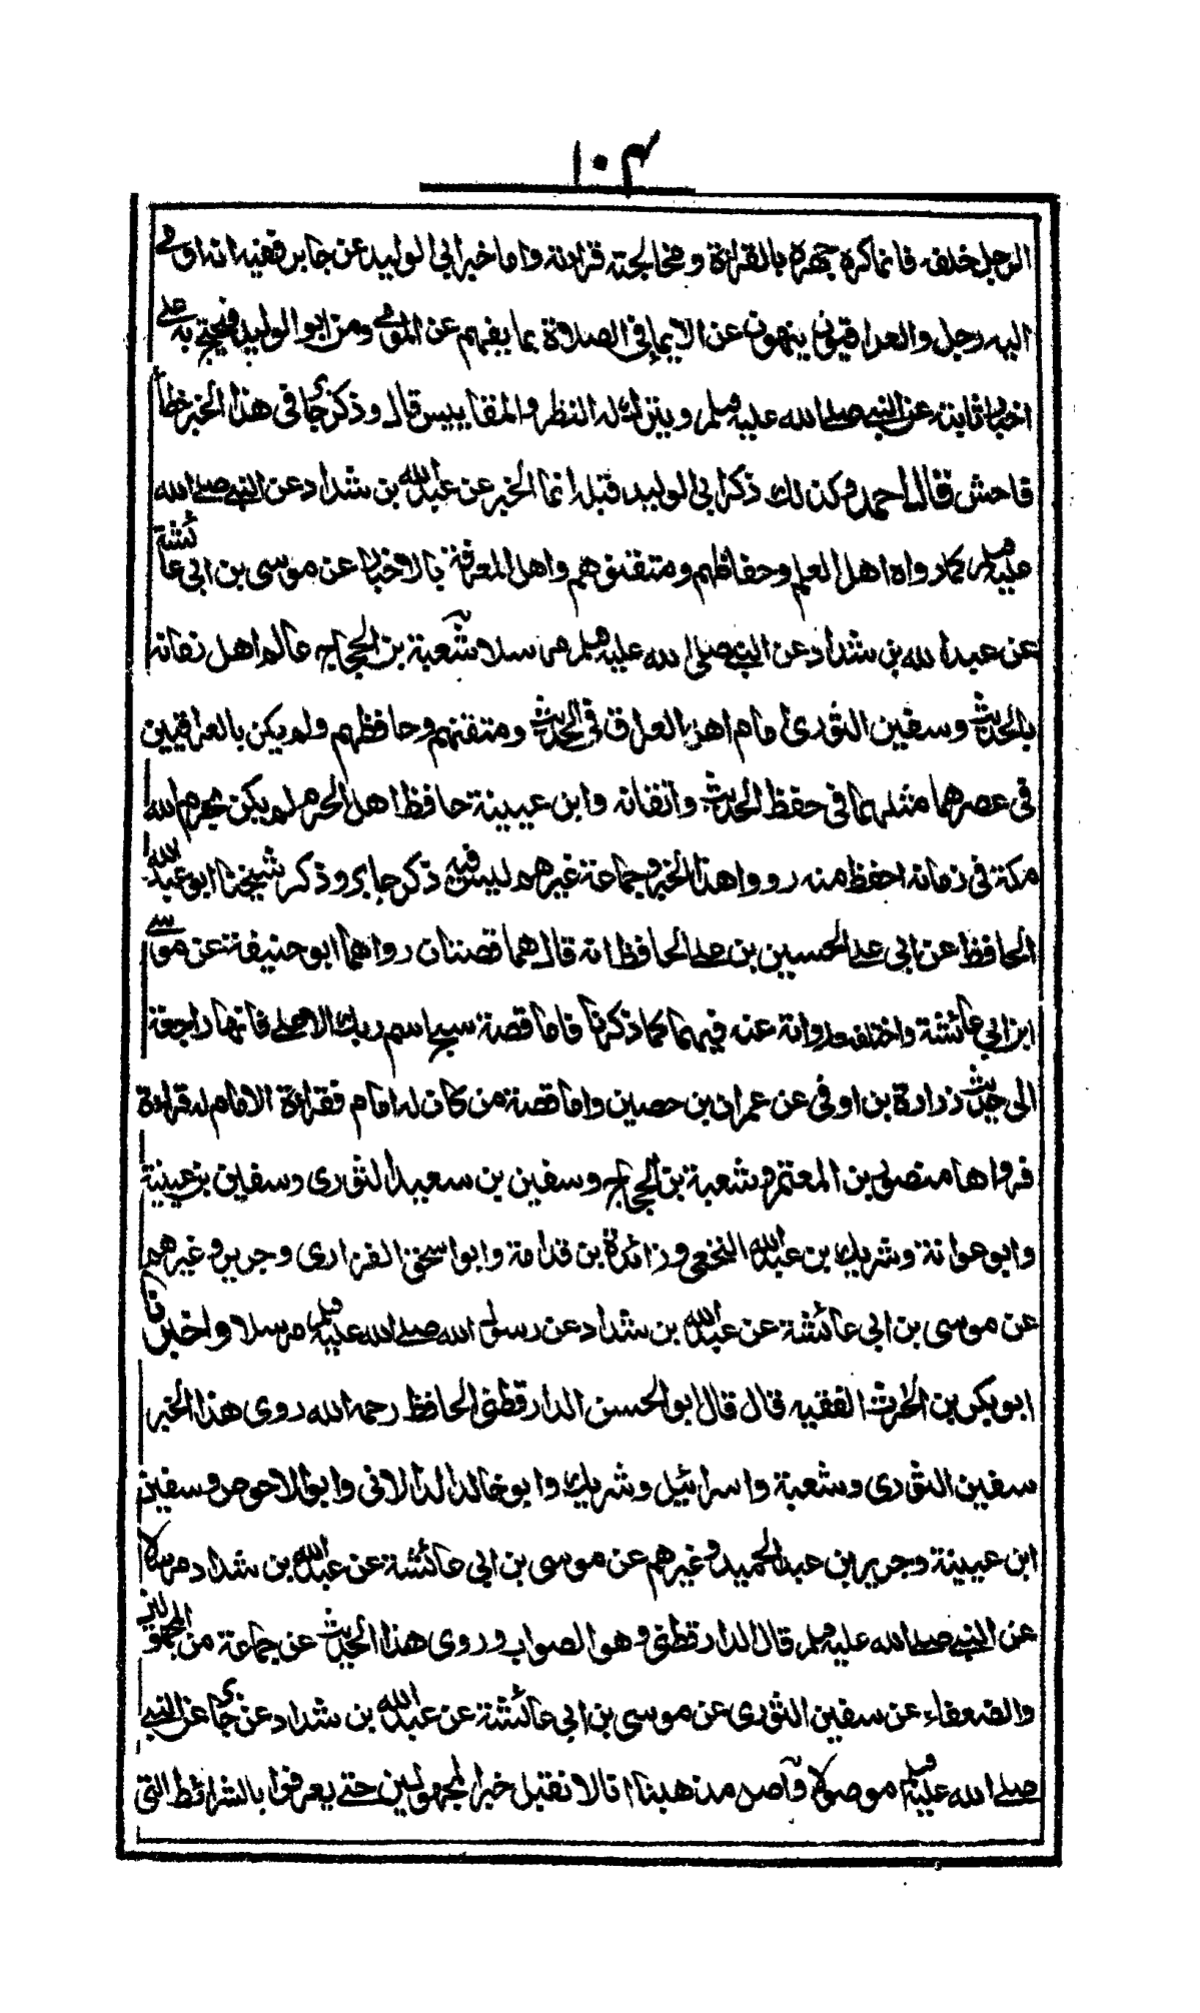 ١٠٤
الرجل خلفه فانما كره جهره بالقراءة ومخالجته قراءته واما خبر ابي الوليد عن جابر ففيه انه اومى
اليه رجل والعراقيون ينهون عن الايماء فى الصلاة بما يفهم عن المومى ومن ابو الوليد فيحتج به على
اخبار ثابتة عن النبي صلے الله عليه وسلم ويترك له النظر والمقاييس قال وذكر جابر فى هذا الخبر خطأ
فاحش قال احمد وكذلك ذكر ابى الوليد قبله انما الخبر عن عبد الله بن شداد عن النبي صلے الله
عليه وسلم كما رواه اهل العلم وحفاظهم ومتقنوهم واهل المعرفة بالاخبار عن موسى بن ابى عائشة
عن عبد الله بن شداد عن النبي صلى الله عليه وسلم مرسلا شعبة بن الحجاج عالم اهل زمانه
بالحديث وسفين الثورى امام اهل العراق فى الحديث ومتقنهم وحافظهم ولم يكن بالعراقيين
فى عصرهما مثلهما فى حفظ الحديث واتقانه وابن عيينة حافظ اهل الحرم لم يكن بحرم الله
مكة فى زمانه احفظ منه رووا هذا الخبر وجماعة غيرهم ليس فيه ذكر جابر وذكر شيخنا ابو عبد الله
الحافظ عن ابى على الحسين بن على الحافظ انه قال هما قصتان رواهما ابو حنيفة عن موسے
ابن ابي عائشة واختلف رواته عنه فيهما كما ذكرنا فاما قصة سبح اسم ربك الاعلے فانها راجعة
الى حديث زرارة بن اوفى عن عمران بن حصين واما قصة من كان له امام فقراءة الامام له قراءة
فرواها منصور بن المعتمر وشعبة بن الحجاج وسفين بن سعيد الثورى وسفين بن عيينة
وابو عوانة وشريك بن عبد الله النخعى وزائدة بن قدامة وابو اسحق الفزارى وجرير وغيرهم
عن موسى بن ابى عائشة عن عبد الله بن شداد عن رسول الله صلے الله عليه وسلم مرسلا واخبرنا
ابو بكر بن الحرث الفقيه قال قال ابو الحسن الدارقطنى الحافظ رحمه الله روى هذا الخبر
سفين الثورى وشعبة واسرائيل وشريك وابو خالد الدالانى وابو الاحوص وسفين
ابن عيينة وجرير بن عبد الحميد وغيرهم عن موسى بن ابى عائشة عن عبد الله بن شداد مرسلا
عن النبي صلے الله عليه وسلم قال الدارقطنى وهو الصواب وروى هذا الحديث عن جماعة من المجهولين
والضعفاء عن سفين الثورى عن موسى بن ابي عائشة عن عبد الله بن شداد عن جابر عن النبي
صلے الله عليه وسلم موصولا واصل مذهبنا انا لا نقبل خبر المجهولين حتے يعرفوا بالشرائط التى